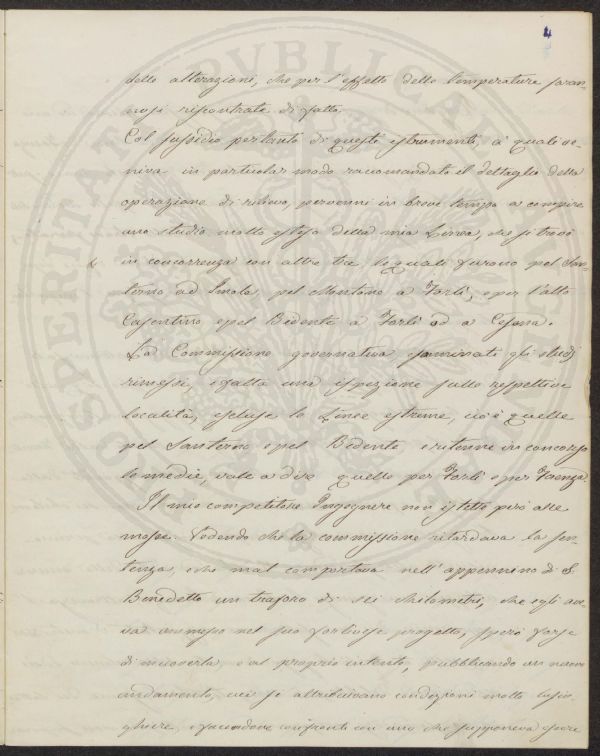 4
delle alterazioni, che per l'effetto della temperatura saran-
nosi riscontrate di fatto.
Col sussidio pertanto di questi istrumenti, a quali ve-
niva in particolar modo raccomandato il dettaglio della
operazione di rilievo, pervenni in breve tempo a compire
uno studio molto esteso della mia Linea, che si trovò
in concorrenza con altre tre, le quali furono pel San-
terno ad Imola, pel Montone a Forlì, e per l'alto
Casentino e pel Bidente a Forlì ad a Cesena.
La Commissione governativa esaminati gli studj
rimessi, e fatta una ispezione sulle respettive
località, escluse le Linee estreme, cioè quelle
pel Santerno e pel Bidente, e ritenne in concorso
le medie, vale a dire quelle per Forlì e per Faenza.
Il mio competitore Ingegnere non istette però alle
mosse. Vedendo che la commissione ritardava la sen-
tenza, e che mal comportava nell'appennino di S.
Benedetto un traforo di sei chilometri, che egli ave-
va ammesso nel suo forlivese progetto, sperò forse
di muoverla al proprio intento, pubblicando un nuovo
andamento, cui si attribuivano condizioni molto lusin-
ghiere, e facendone confronti con uno che supponeva essere
PROSPERITATI PVBLICAE